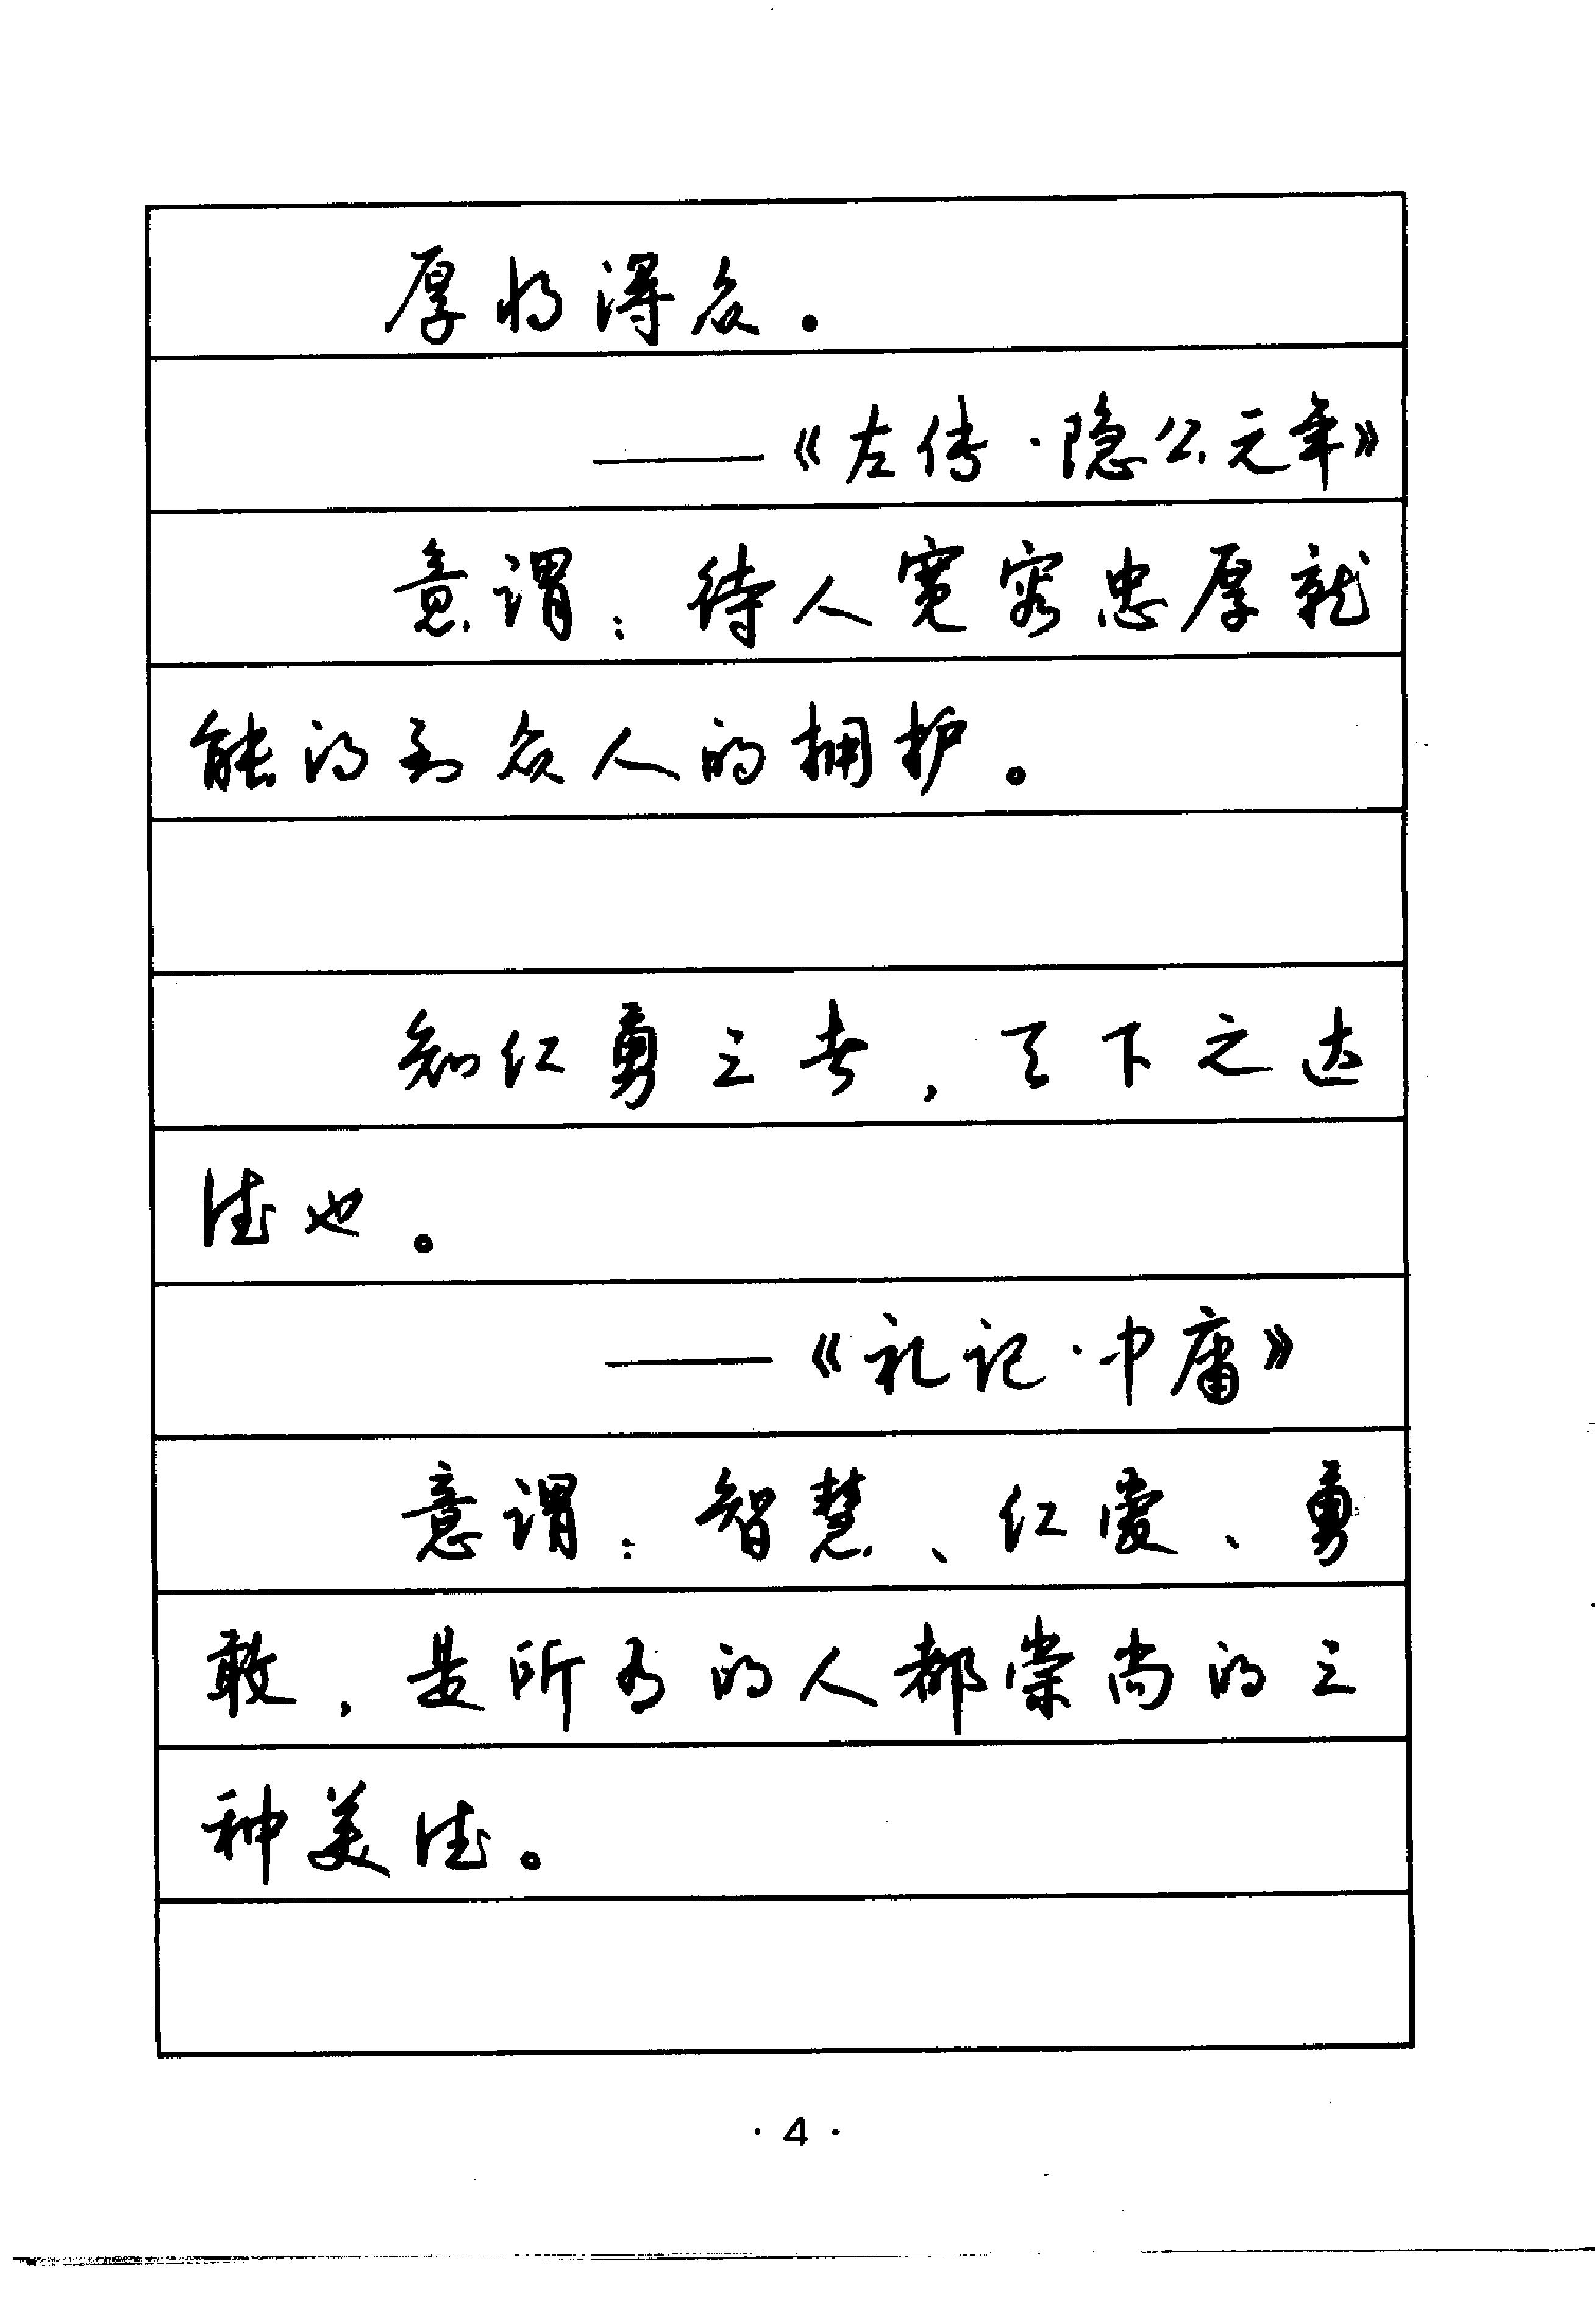 厚将得众。
——《左传·隐公元年》
意谓：待人宽容忠厚就
能得到众人的拥护。
知仁勇三者，天下之达
德也。
——《礼记·中庸》
意谓：智慧、仁爱、勇
敢，是所有的人都崇尚的三
种美德。
·4·